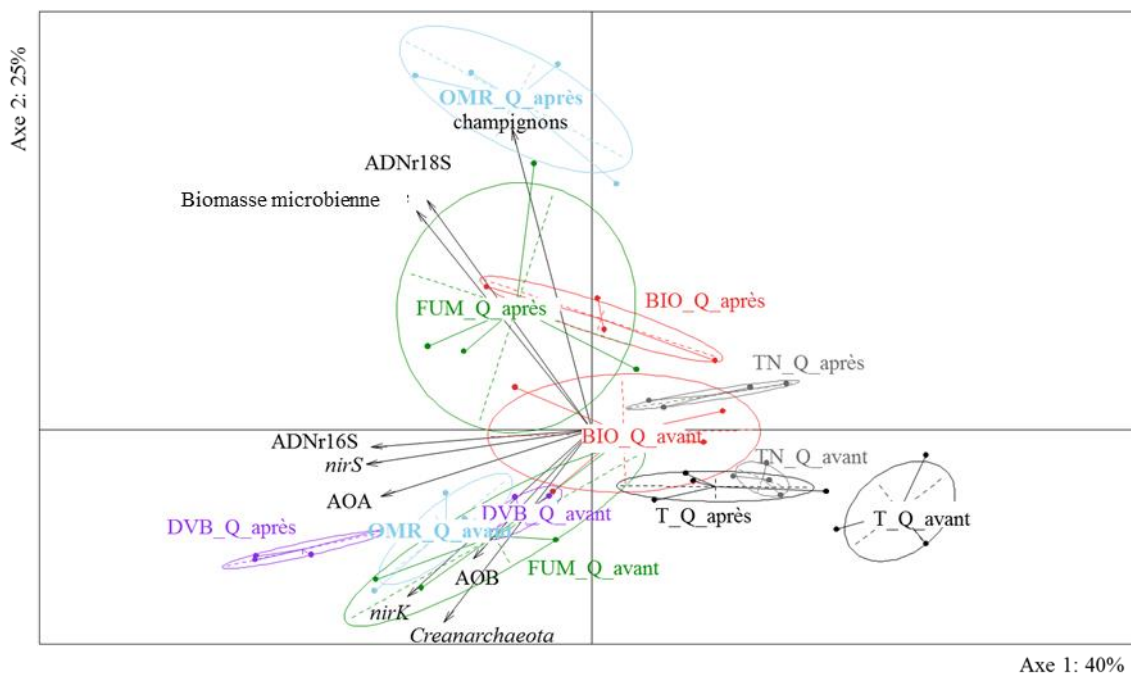 Axe 2: 25%
OMR_Q_après
champignons
ADNr18S
Biomasse microbienne
FUM_Q_après
BIO_Q_après
TN_Q_après
ADNr16S
BIO_Q_avant
nirS
TN_Q_avant
AOA
DVB_Q_avant
T_Q_après
T_Q_avant
DVB_Q_après
OMR_Q_avant
AOB
FUM_Q_avant
nirK
Creanarchaeota
Axe 1: 40%